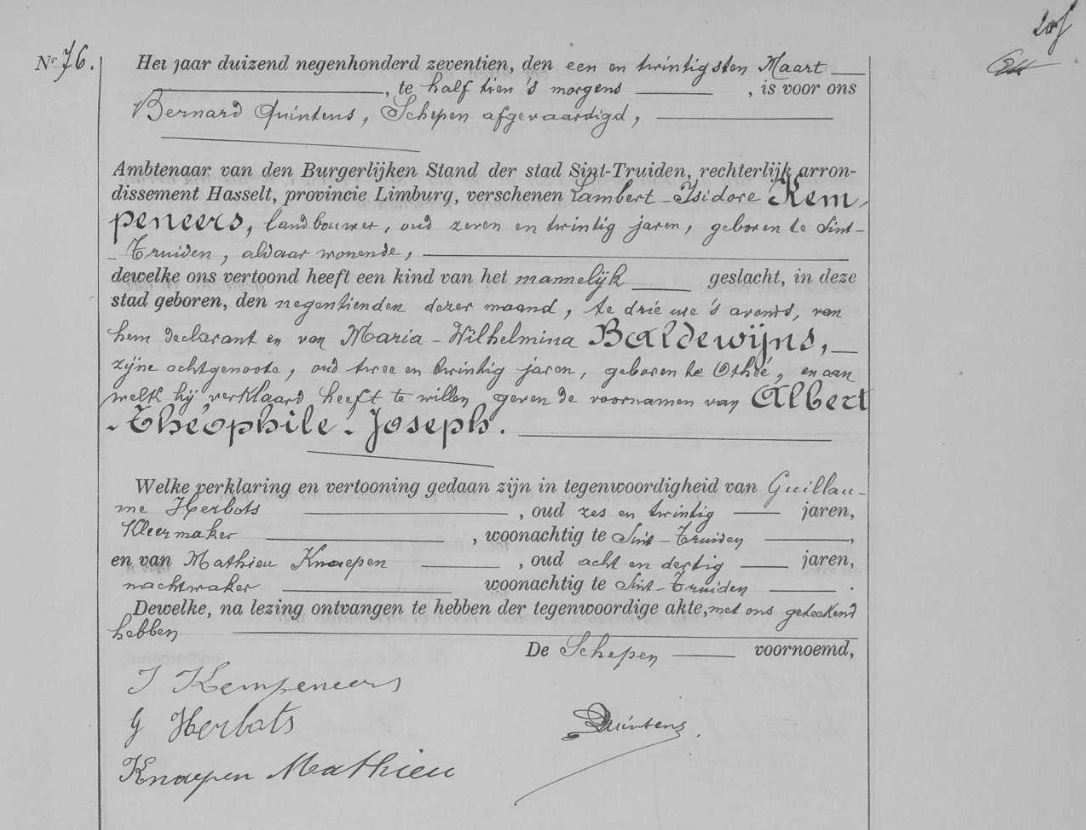 Nr 76.
Het jaar duizend negenhonderd zeventien, den een en twintigsten Maart
, te half tien 's morgens , is voor ons
Bernard Quintens, Schepen afgevaardigd,
Ambtenaar van den Burgerlijken Stand der stad Sint-Truiden, rechterlijk arron-
dissement Hasselt, provincie Limburg, verschenen Lambert-Isidore Kem-
peneers, landbouwer, oud zeven en twintig jaren, geboren te Sint-
Truiden, aldaar wonende,
dewelke ons vertoond heeft een kind van het mannelijk geslacht, in deze
stad geboren, den negentienden dezer maand, te drie ure 's avonds, van
hem declarant en van Maria-Wilhelmina Baldewijns,
zijne echtgenoote, oud twee en twintig jaren, geboren te Othée, en aan
welk hij verklaard heeft te willen geven de voornamen van Albert
-Théophile-Joseph.
Welke verklaring en vertooning gedaan zijn in tegenwoordigheid van Guillau-
me Herbots , oud zes en twintig jaren,
Kleermaker , woonachtig te Sint-Truiden ,
en van Mathieu Knaepen , oud acht en dertig jaren,
nachtwaker woonachtig te Sint-Truiden .
Dewelke, na lezing ontvangen te hebben der tegenwoordige akte, met ons geteekend
hebben
De Schepen voornoemd,
I Kempeneers
G Herbots
Quintens.
Knaepen Mathieu